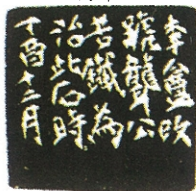 李盦改
號聾公
苦鐵為
治此石時
丁酉十二月